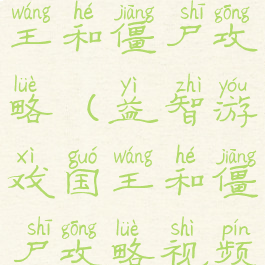 wáng hé jiāng shī gōng
王和僵尸攻
lüè yì zhì yóu
略(益智游
xì guó wáng hé jiāng
戏国王和僵
shī gōng lüè shì pín
尸攻略视频